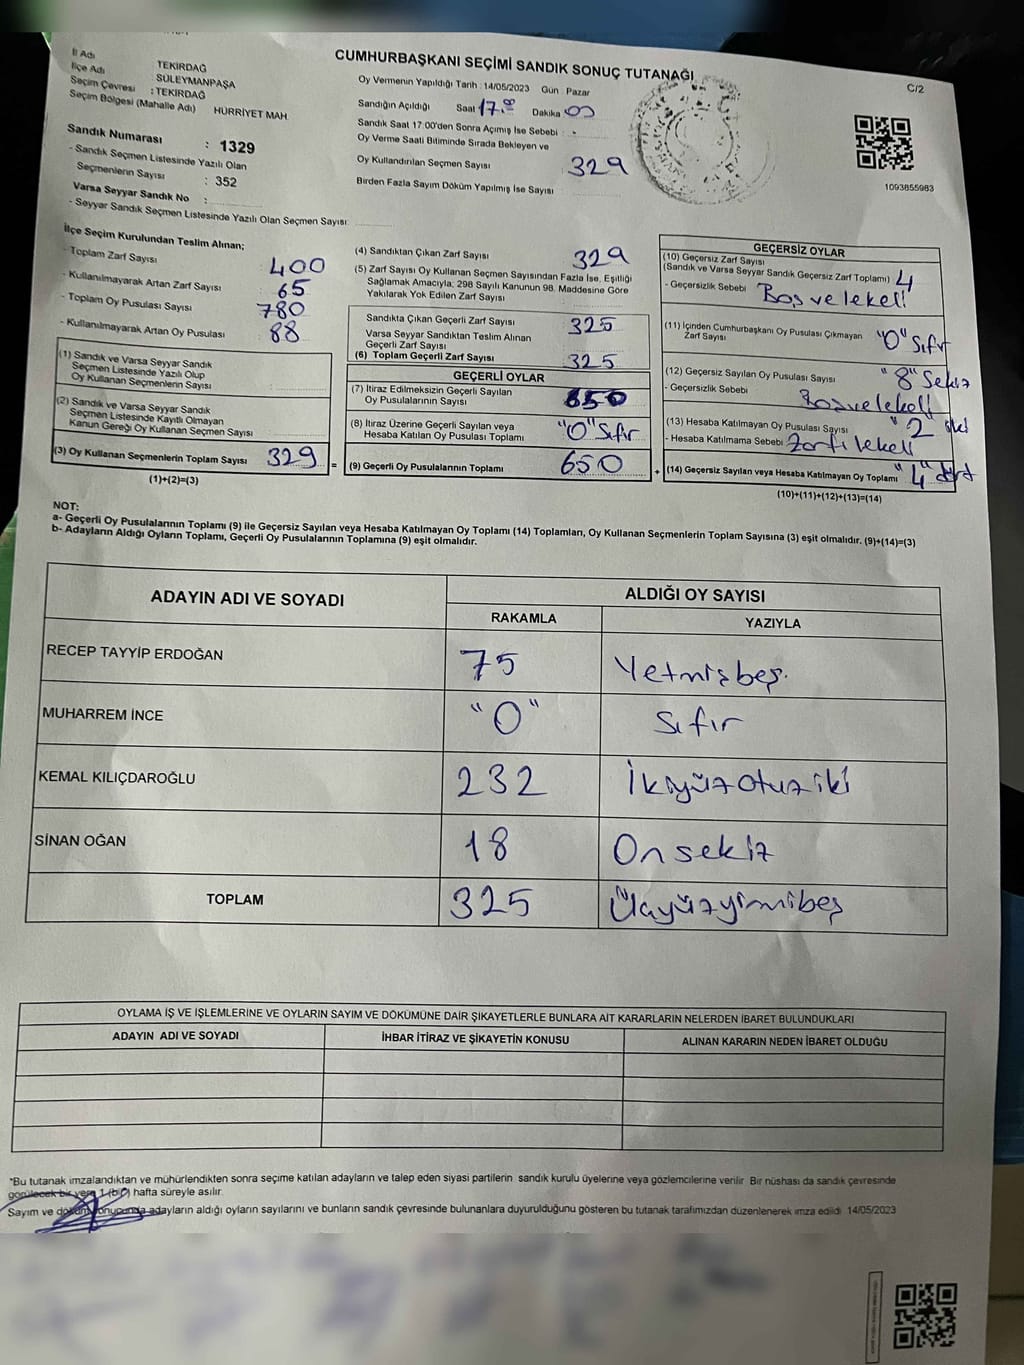 C/2
CUMHURBAŞKANI SEÇİMİ SANDIK SONUÇ TUTANAĞI
İl Adı TEKİRDAĞ
İlçe Adı SÜLEYMANPAŞA
Seçim Çevresi : TEKİRDAĞ
Seçim Bölgesi (Mahalle Adı) HÜRRİYET MAH.
Sandık Numarası : 1329
- Sandık Seçmen Listesinde Yazılı Olan
Seçmenlerin Sayısı : 352
Varsa Seyyar Sandık No :
- Seyyar Sandık Seçmen Listesinde Yazılı Olan Seçmen Sayısı:
Oy Vermenin Yapıldığı Tarih : 14/05/2023 Gün : Pazar
Sandığın Açıldığı Saat 17.00 Dakika 00
Sandık Saat 17:00'den Sonra Açılmış İse Sebebi : -
Oy Verme Saati Bitiminde Sırada Bekleyen ve
Oy Kullandırılan Seçmen Sayısı 329
Birden Fazla Sayım Döküm Yapılmış İse Sayısı
1093855983
İlçe Seçim Kurulundan Teslim Alınan;
- Toplam Zarf Sayısı 400
- Kullanılmayarak Artan Zarf Sayısı 65
- Toplam Oy Pusulası Sayısı 780
- Kullanılmayarak Artan Oy Pusulası 88
(1) Sandık ve Varsa Seyyar Sandık
Seçmen Listesinde Yazılı Olup
Oy Kullanan Seçmenlerin Sayısı
(2) Sandık ve Varsa Seyyar Sandık
Seçmen Listesinde Kayıtlı Olmayan
Kanun Gereği Oy Kullanan Seçmen Sayısı
(3) Oy Kullanan Seçmenlerin Toplam Sayısı 329
(1)+(2)=(3)
(4) Sandıktan Çıkan Zarf Sayısı 329
(5) Zarf Sayısı Oy Kullanan Seçmen Sayısından Fazla İse, Eşitliği
Sağlamak Amacıyla; 298 Sayılı Kanunun 98. Maddesine Göre
Yakılarak Yok Edilen Zarf Sayısı
Sandıkta Çıkan Geçerli Zarf Sayısı 325
Varsa Seyyar Sandıktan Teslim Alınan
Geçerli Zarf Sayısı
(6) Toplam Geçerli Zarf Sayısı 325
GEÇERLİ OYLAR
(7) İtiraz Edilmeksizin Geçerli Sayılan
Oy Pusulalarının Sayısı 650
(8) İtiraz Üzerine Geçerli Sayılan veya
Hesaba Katılan Oy Pusulası Toplamı "0" Sıfır
(9) Geçerli Oy Pusulalarının Toplamı 650
GEÇERSİZ OYLAR
(10) Geçersiz Zarf Sayısı
(Sandık ve Varsa Seyyar Sandık Geçersiz Zarf Toplamı) 4
- Geçersizlik Sebebi Boş ve lekeli
(11) İçinden Cumhurbaşkanı Oy Pusulası Çıkmayan
Zarf Sayısı "0" Sıfır
(12) Geçersiz Sayılan Oy Pusulası Sayısı "8" Sekiz
- Geçersizlik Sebebi Boş ve lekeli
(13) Hesaba Katılmayan Oy Pusulası Sayısı "2" iki
- Hesaba Katılmama Sebebi Zarfı lekeli
(14) Geçersiz Sayılan veya Hesaba Katılmayan Oy Toplamı "4" dört
(10)+(11)+(12)+(13)=(14)
NOT:
a- Geçerli Oy Pusulalarının Toplamı (9) ile Geçersiz Sayılan veya Hesaba Katılmayan Oy Toplamı (14) Toplamları, Oy Kullanan Seçmenlerin Toplam Sayısına (3) eşit olmalıdır. (9)+(14)=(3)
b- Adayların Aldığı Oyların Toplamı, Geçerli Oy Pusulalarının Toplamına (9) eşit olmalıdır.
ADAYIN ADI VE SOYADI ALDIĞI OY SAYISI
RAKAMLA YAZIYLA
RECEP TAYYİP ERDOĞAN 75 Yetmişbeş.
MUHARREM İNCE "0" Sıfır
KEMAL KILIÇDAROĞLU 232 İkiyüzotuziki
SİNAN OĞAN 18 Onsekiz
TOPLAM 325 Üçyüzyirmibeş
OYLAMA İŞ VE İŞLEMLERİNE VE OYLARIN SAYIM VE DÖKÜMÜNE DAİR ŞİKAYETLERLE BUNLARA AİT KARARLARIN NELERDEN İBARET BULUNDUKLARI
ADAYIN ADI VE SOYADI İHBAR İTİRAZ VE ŞİKAYETİN KONUSU ALINAN KARARIN NEDEN İBARET OLDUĞU
"Bu tutanak imzalandıktan ve mühürlendikten sonra seçime katılan adayların ve talep eden siyasi partilerin sandık kurulu üyelerine veya gözlemcilerine verilir. Bir nüshası da sandık çevresinde
görülecek bir yere 1 (bir) hafta süreyle asılır.
Sayım ve döküm sonucunda adayların aldığı oyların sayılarını ve bunların sandık çevresinde bulunanlara duyurulduğunu gösteren bu tutanak tarafımızdan düzenlenerek imza edildi 14/05/2023